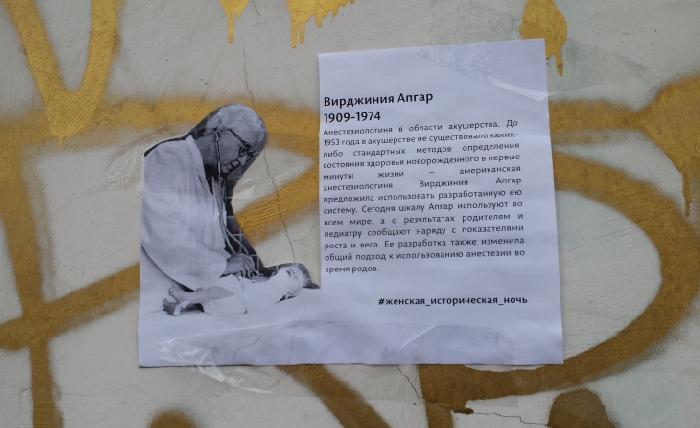 Вирджиния Апгар
1909-1974
Анестезиологиня в области акушерства. До
1953 года в акушерстве не существовало каких-
либо стандартных методов определения
состояния здоровья новорожденного в первые
минуты жизни – американская
анестезиологиня Вирджиния Апгар
предложила использовать разработанную ею
систему. Сегодня шкалу Апгар используют во
всем мире, а с результатах родителям и
педиатру сообщают наряду с показателями
роста и веса. Ее разработка также изменила
общий подход к использованию анестезии во
время родов.
#женская_историческая_ночь